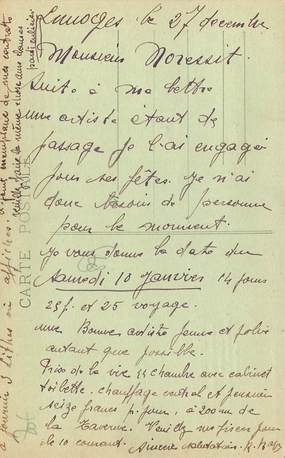 Limoges le 27 décembre
Monsieur Noressit.
Suite à ma lettre
une artiste étant de
passage je l'ai engagée
pour ses fêtes. Je n'ai
donc besoin de personne
pour le moment.
Je vous donne la date du
Samedi 10 Janvier 14 jours
25 f. et 25 voyage.
une Bonne artiste jeune et jolie
autant que possible.
Prix de la vie chambre avec cabinet
toilette, chauffage central et pension
seize francs p. jour, à 200 m de
la Taverne. Veuillez me fixer pour
le 10 courant. Sincère salutation.
à fournir 3 lithos ou affiches.
de mes contrats
veuillez faire la même chose dans clauses
particulières
CARTE POSTALE